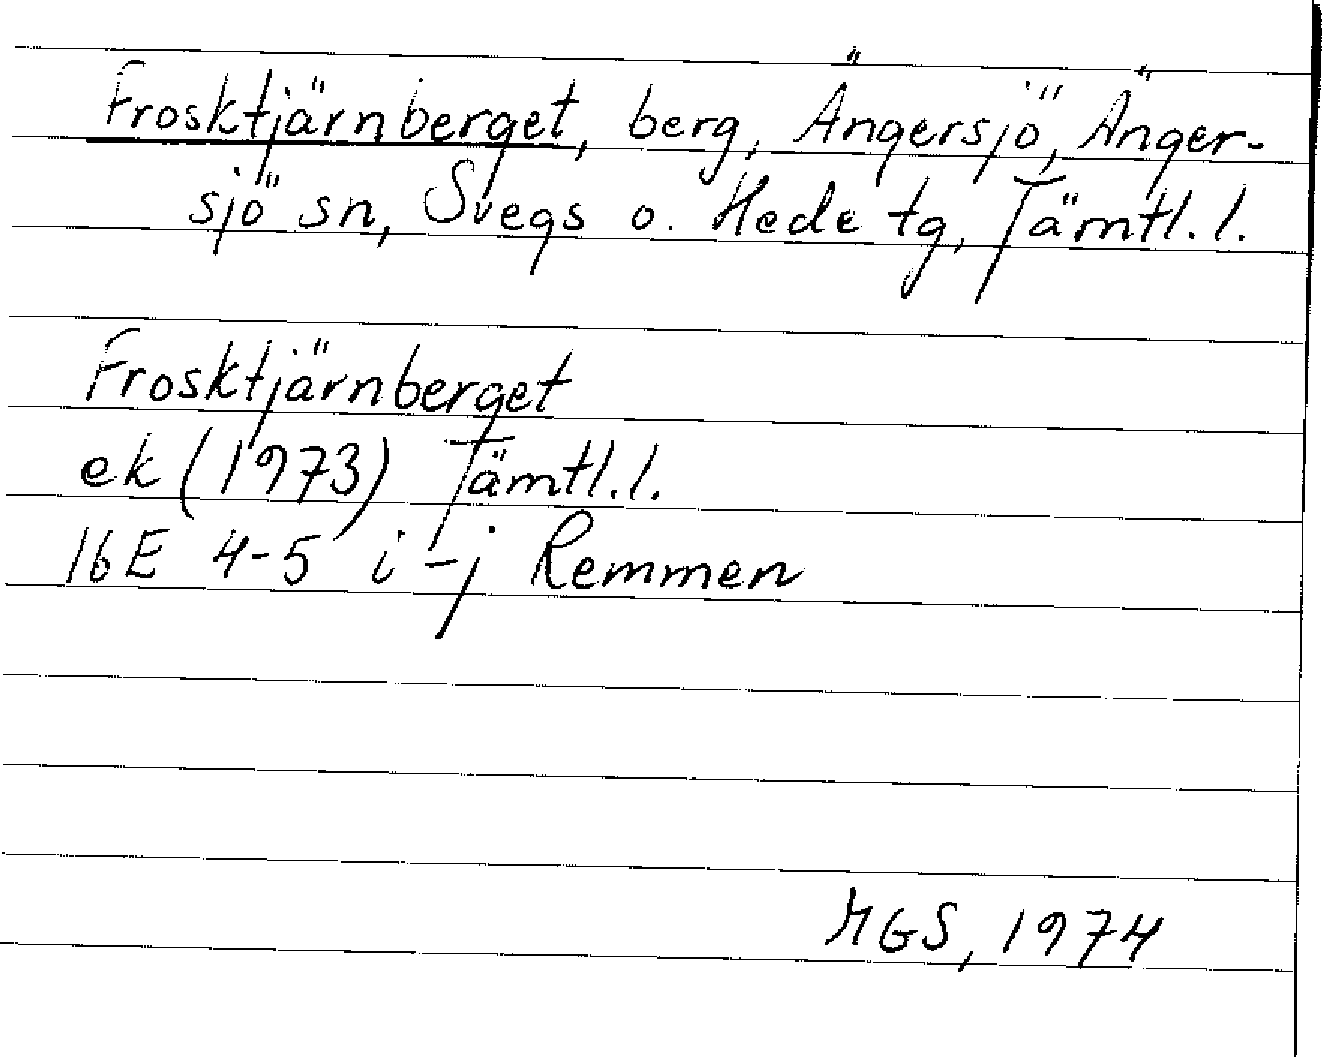 Frosktjärnberget, berg, Ängersjö, Änger-
sjö sn, Svegs o. Hede tg, Jämtl. l.
Frosktjärnberget
ek (1973) Jämtl. l.
16E 4-5 i-j Remmen
MGS, 1974